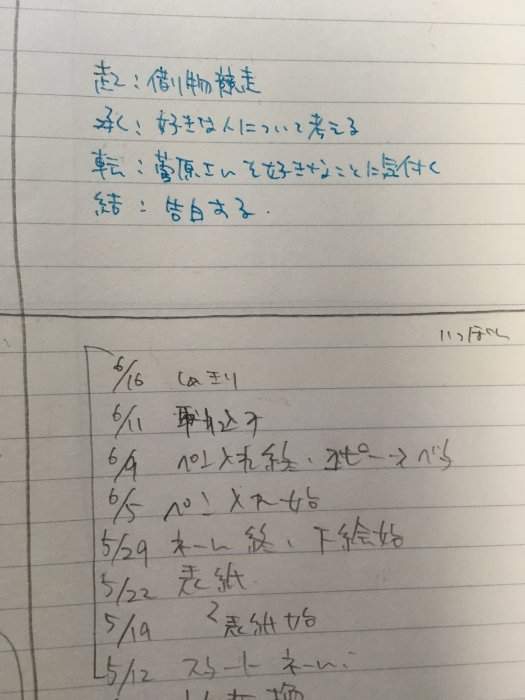 起:借り物競走
承:好きな人について考える
転:菅原さんを好きなことに気付く
結:告白する.
いっぽん
6/16 しめきり
6/11 取り込み
6/9 ペン入れ終、
6/5 ペン入れ始
5/29 ネーム終、下絵始
5/22 表紙
5/19 表紙始
5/12 スタートネーム